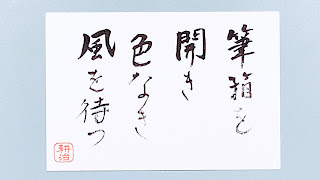 筆箱を
開き
色なき
風を待つ
耕治